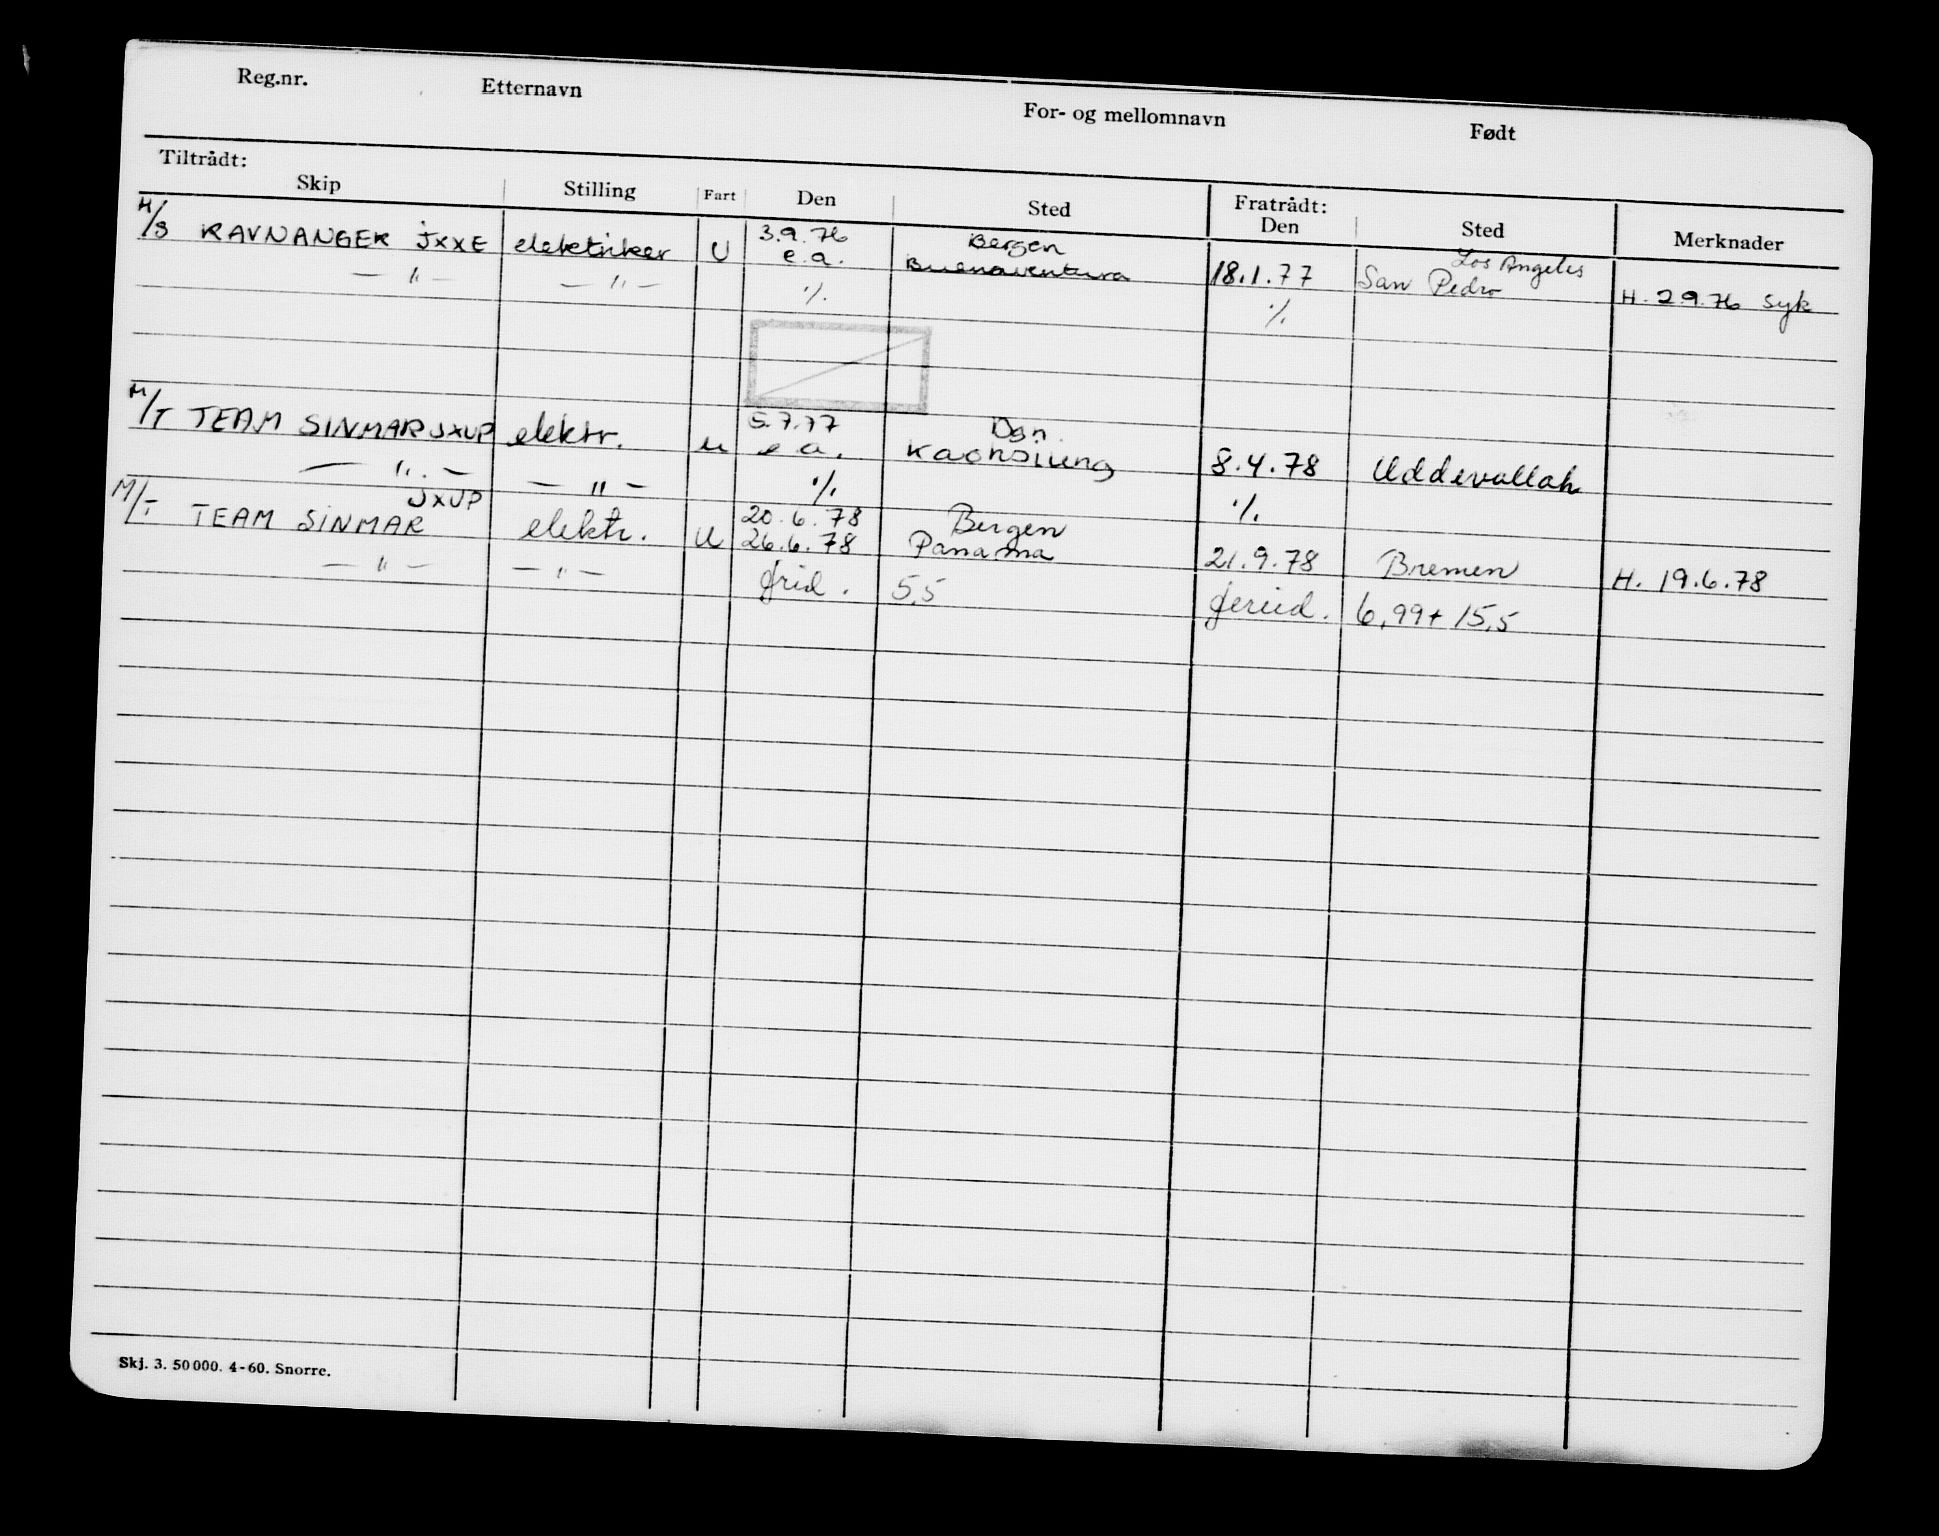 Reg.nr. Etternavn For- og mellomnavn Født
Tiltrådt: Fratrådt:
Skip Stilling Fart Den Sted Den Sted Merknader
3.9.76 Bergen Los Angeles
M/S RAVNANGER JXXE elektriker U e.a. Buenaventura 18.1.77 San Pedro H. 2.9.76 syk
— " — — " — ./. ./.
5.7.77 Dgn.
M/T TEAM SINMAR JXUP elektr. u e.a. Kaohsiung 8.4.78 Uddevallah
— " — — " — ./. ./.
JXUP 20.6.78 Bergen
M/T TEAM SINMAR elektr. U 26.6.78 Panama 21.9.78 Bremen H. 19.6.78
— " — — " — frid. 5,5 6,99 + 15,5
Skj. 3. 50000. 4-60. Snorre.